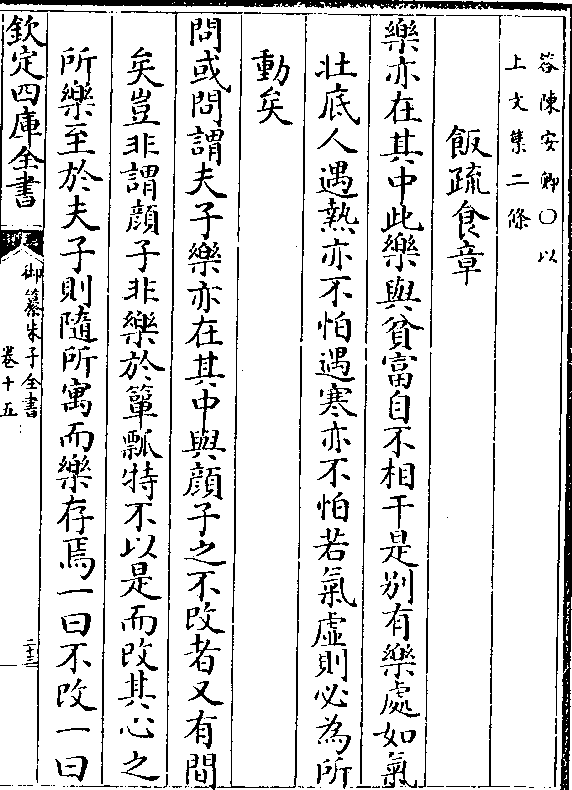 答陳安卿○以
上文集二條
飯疏食章
樂亦在其中此樂與貧富自不相干是别有樂處如氣
壯底人遇熱亦不怕遇寒亦不怕若氣虛則必為所
動矣
問或問謂夫子樂亦在其中與顔子之不改者又有間
矣豈非謂顔子非樂於簞瓢特不以是而改其心之
所樂至於夫子則隨所寓而樂存焉一曰不改一曰
欽定四庫全書
御纂朱子全書
卷十五
二十三